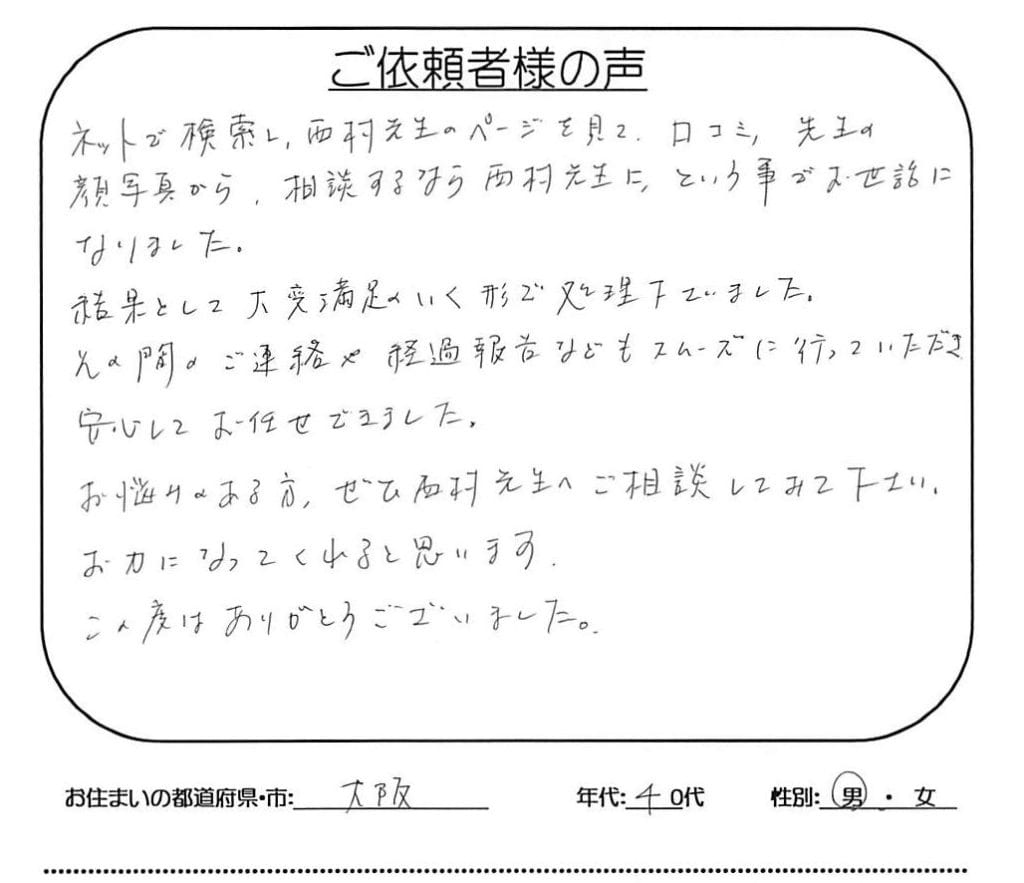 ご依頼者様の声
ネットで検索し、西村先生のページを見て、口コミ、先生の
顔写真から、相談するなら西村先生に、という事でお世話に
なりました。
結果として大変満足のいく形で処理下さいました。
その間のご連絡や経過報告などもスムーズに行っていただき
安心してお任せできました。
お悩みのある方、ぜひ西村先生へご相談してみて下さい。
お力になってくれると思います。
この度はありがとうございました。
お住まいの都道府県・市: 大阪 年代: 40代 性別: 男 ・ 女